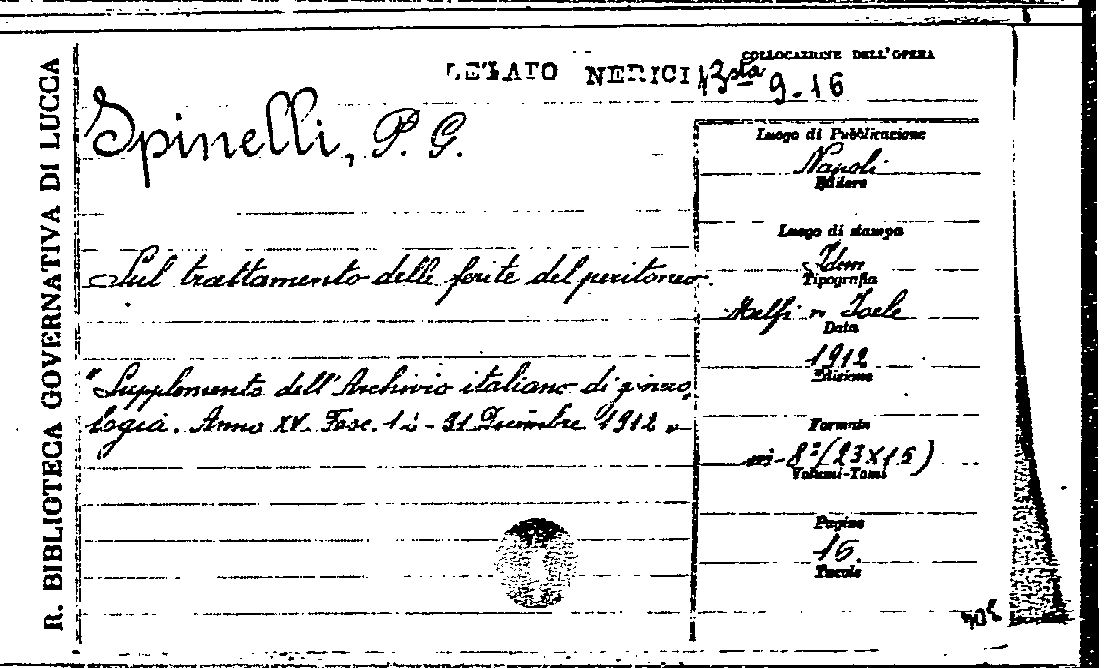 R. BIBLIOTECA GOVERNATIVA DI LUCCA
LEGATO NERICI
COLLOCAZIONE DELL'OPERA
13sta 9-16
Spinelli, P. G.
Sul trattamento delle ferite del peritoneo.
"Supplemento dell'Archivio italiano di gineco-
logia. Anno XV. Fasc. 1º - 31 Dicembre 1912"
Luogo di Pubblicazione
Napoli
Editore
Luogo di stampa
Idem
Tipografia
Melfi e Joele
Data
1912
Edizione
Formato
in-8º (23x15)
Volumi-Tomi
Pagine
15.
Tavole